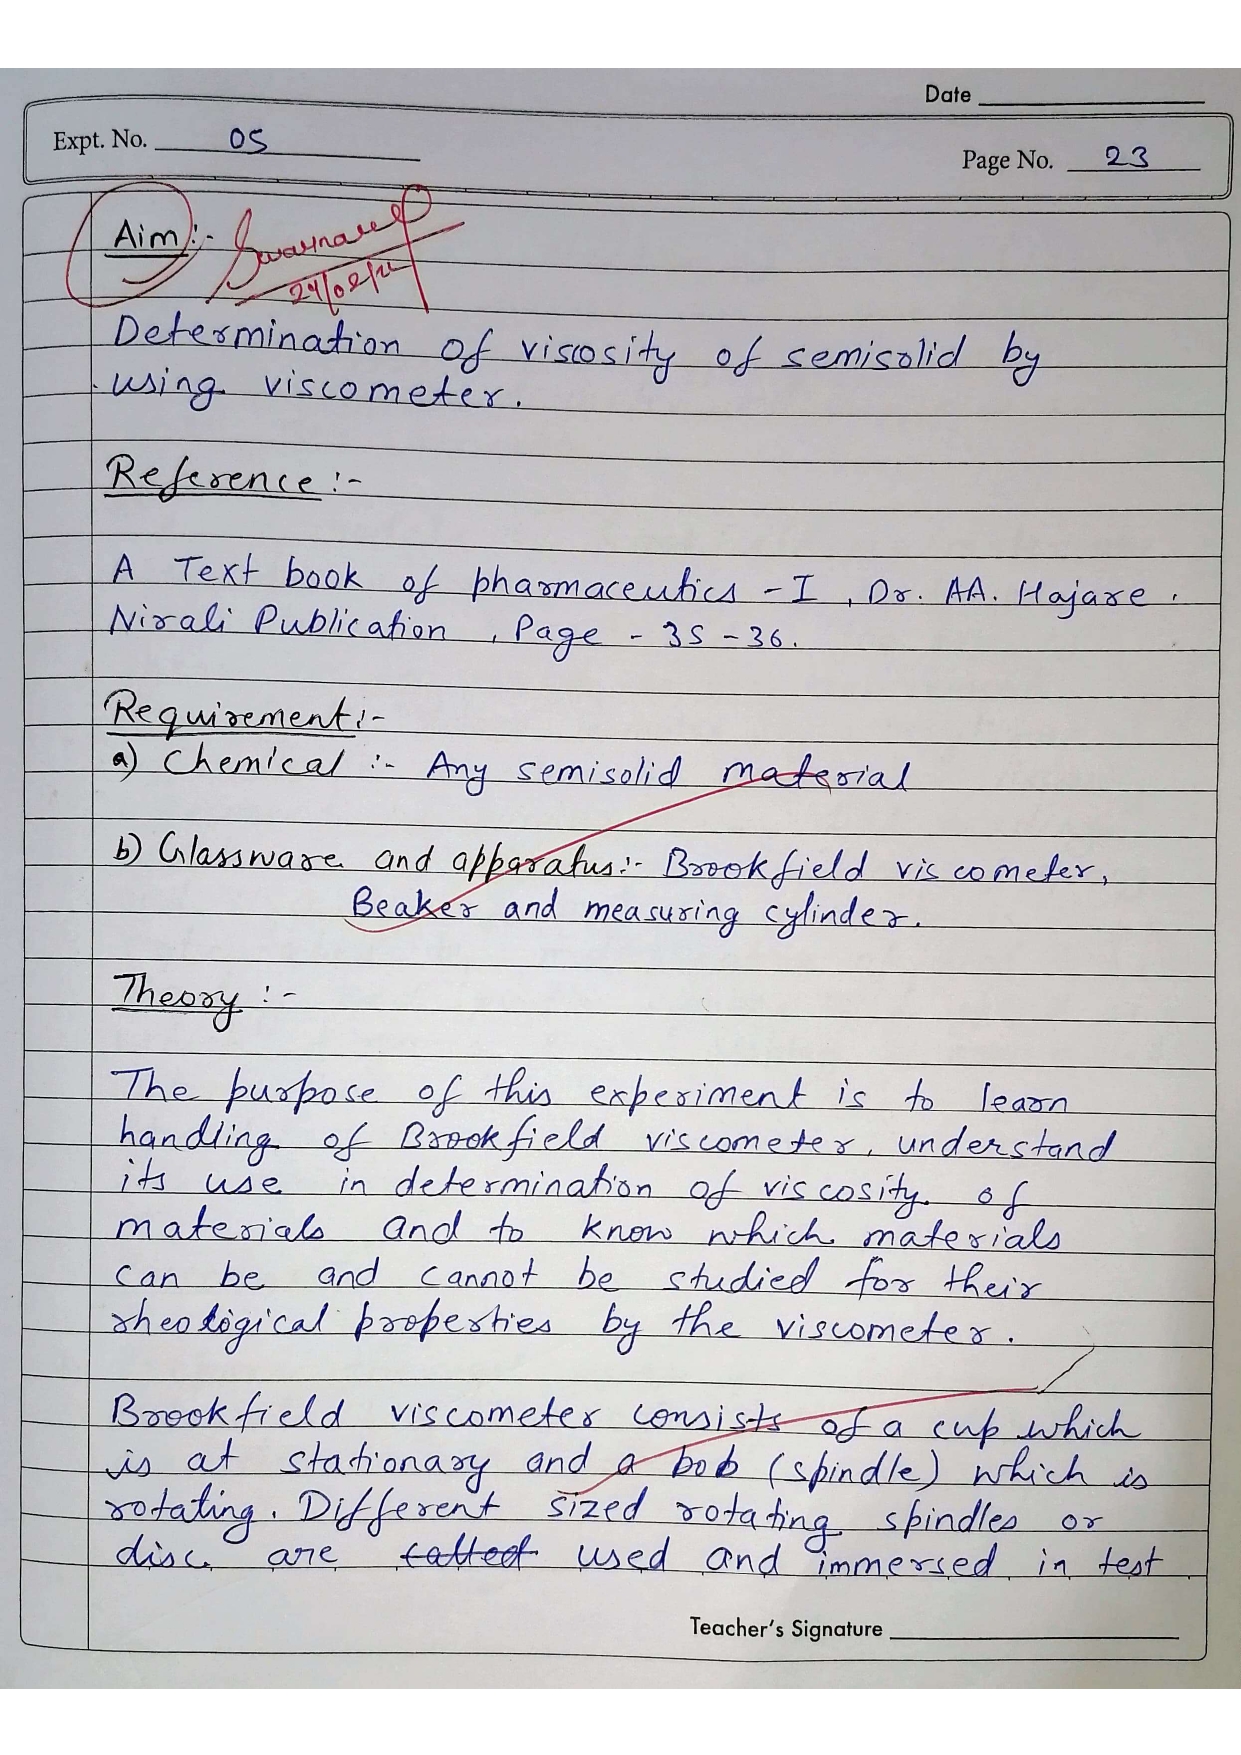 Date
Expt. No. 05
Page No. 23
Aim :-
Determination of viscosity of semisolid by
using viscometer.
Reference :-
A Text book of pharmaceutics - I, Dr. AA. Hajare.
Nirali Publication, Page - 35 - 36.
Requirement :-
a) Chemical :- Any semisolid material
b) Glassware and apparatus:- Brookfield viscometer,
Beaker and measuring cylinder.
Theory :-
The purpose of this experiment is to learn
handling of Brookfield viscometer, understand
its use in determination of viscosity of
materials and to know which materials
can be and cannot be studied for their
rheological properties by the viscometer.
Brookfield viscometer consists of a cup which
is at stationary and a bob (spindle) which is
rotating. Different sized rotating spindles or
disc are used and immersed in test
Teacher's Signature